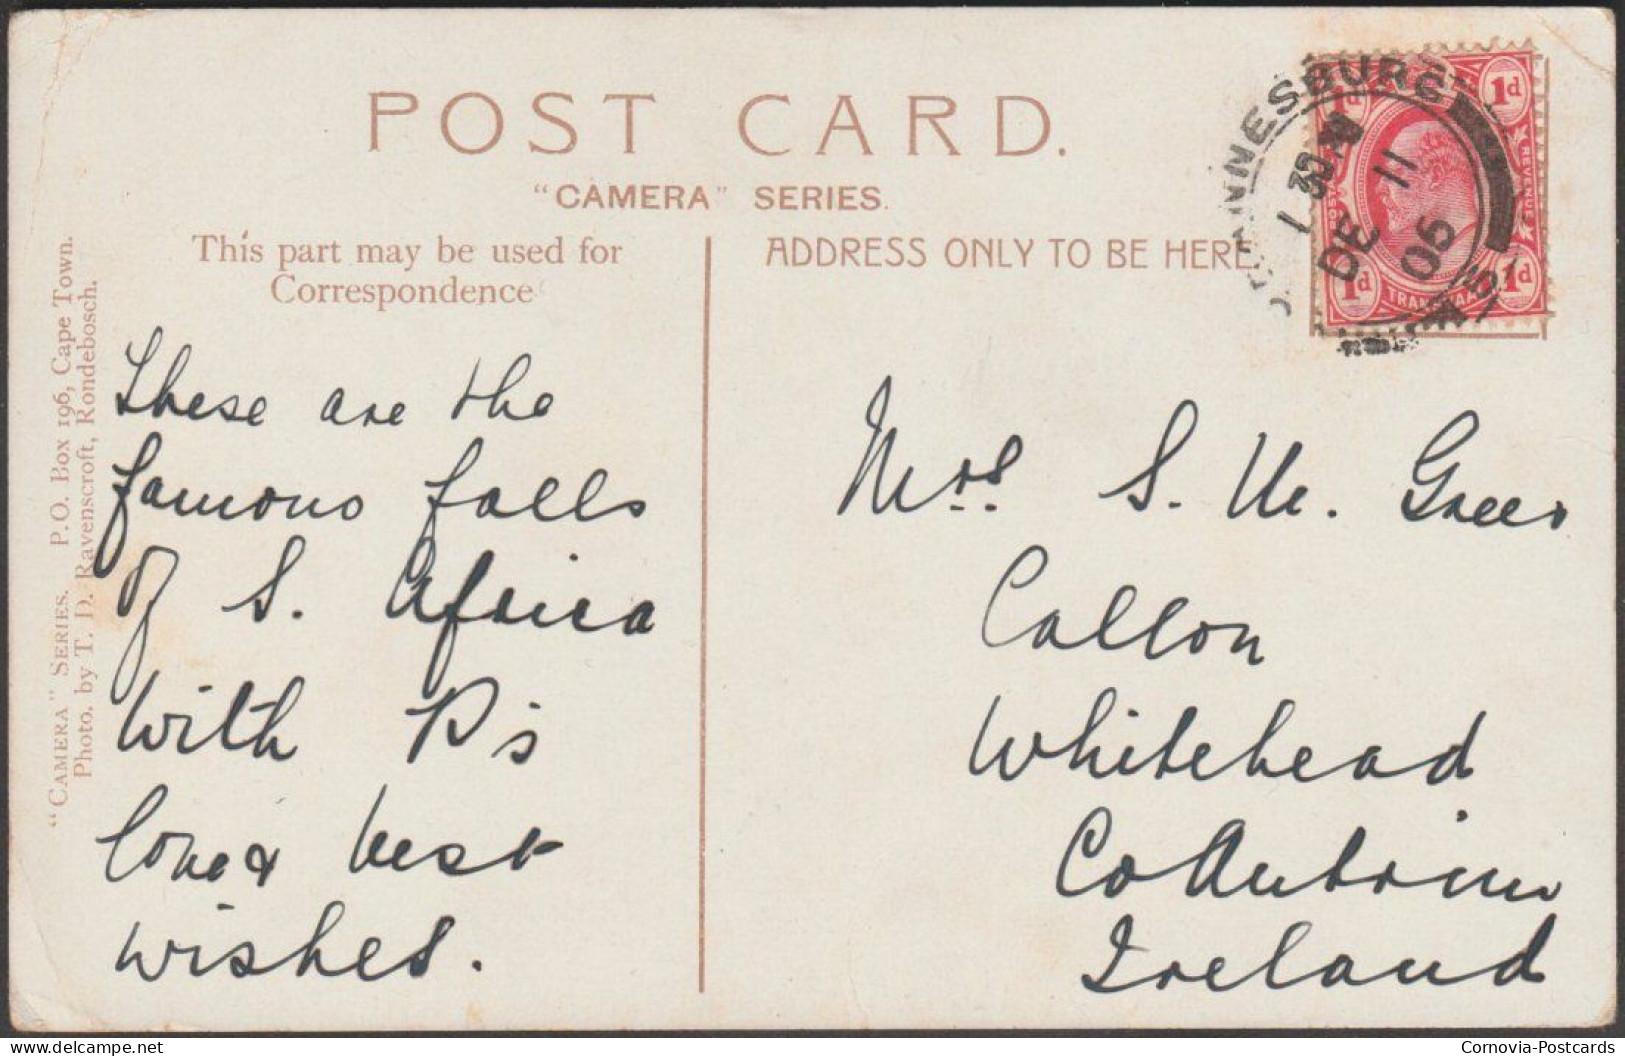 POST CARD.
"CAMERA" SERIES.
This part may be used for
Correspondence
ADDRESS ONLY TO BE HERE
"CAMERA" SERIES. P.O. Box 196, Cape Town.
Photo. by T. D. Ravenscroft, Rondebosch.
These are the
famous falls
of S. Africa
With P's
love & best
wishes.
Mrs. S. M. Green
Callon
Whitehead
Co Antrim
Ireland
NNESBURG
1 30 PM
DE 11
05
1d
1d
REVENUE
1d
1d
TRANSVAAL
delcampe.net
Cornovia-Postcards